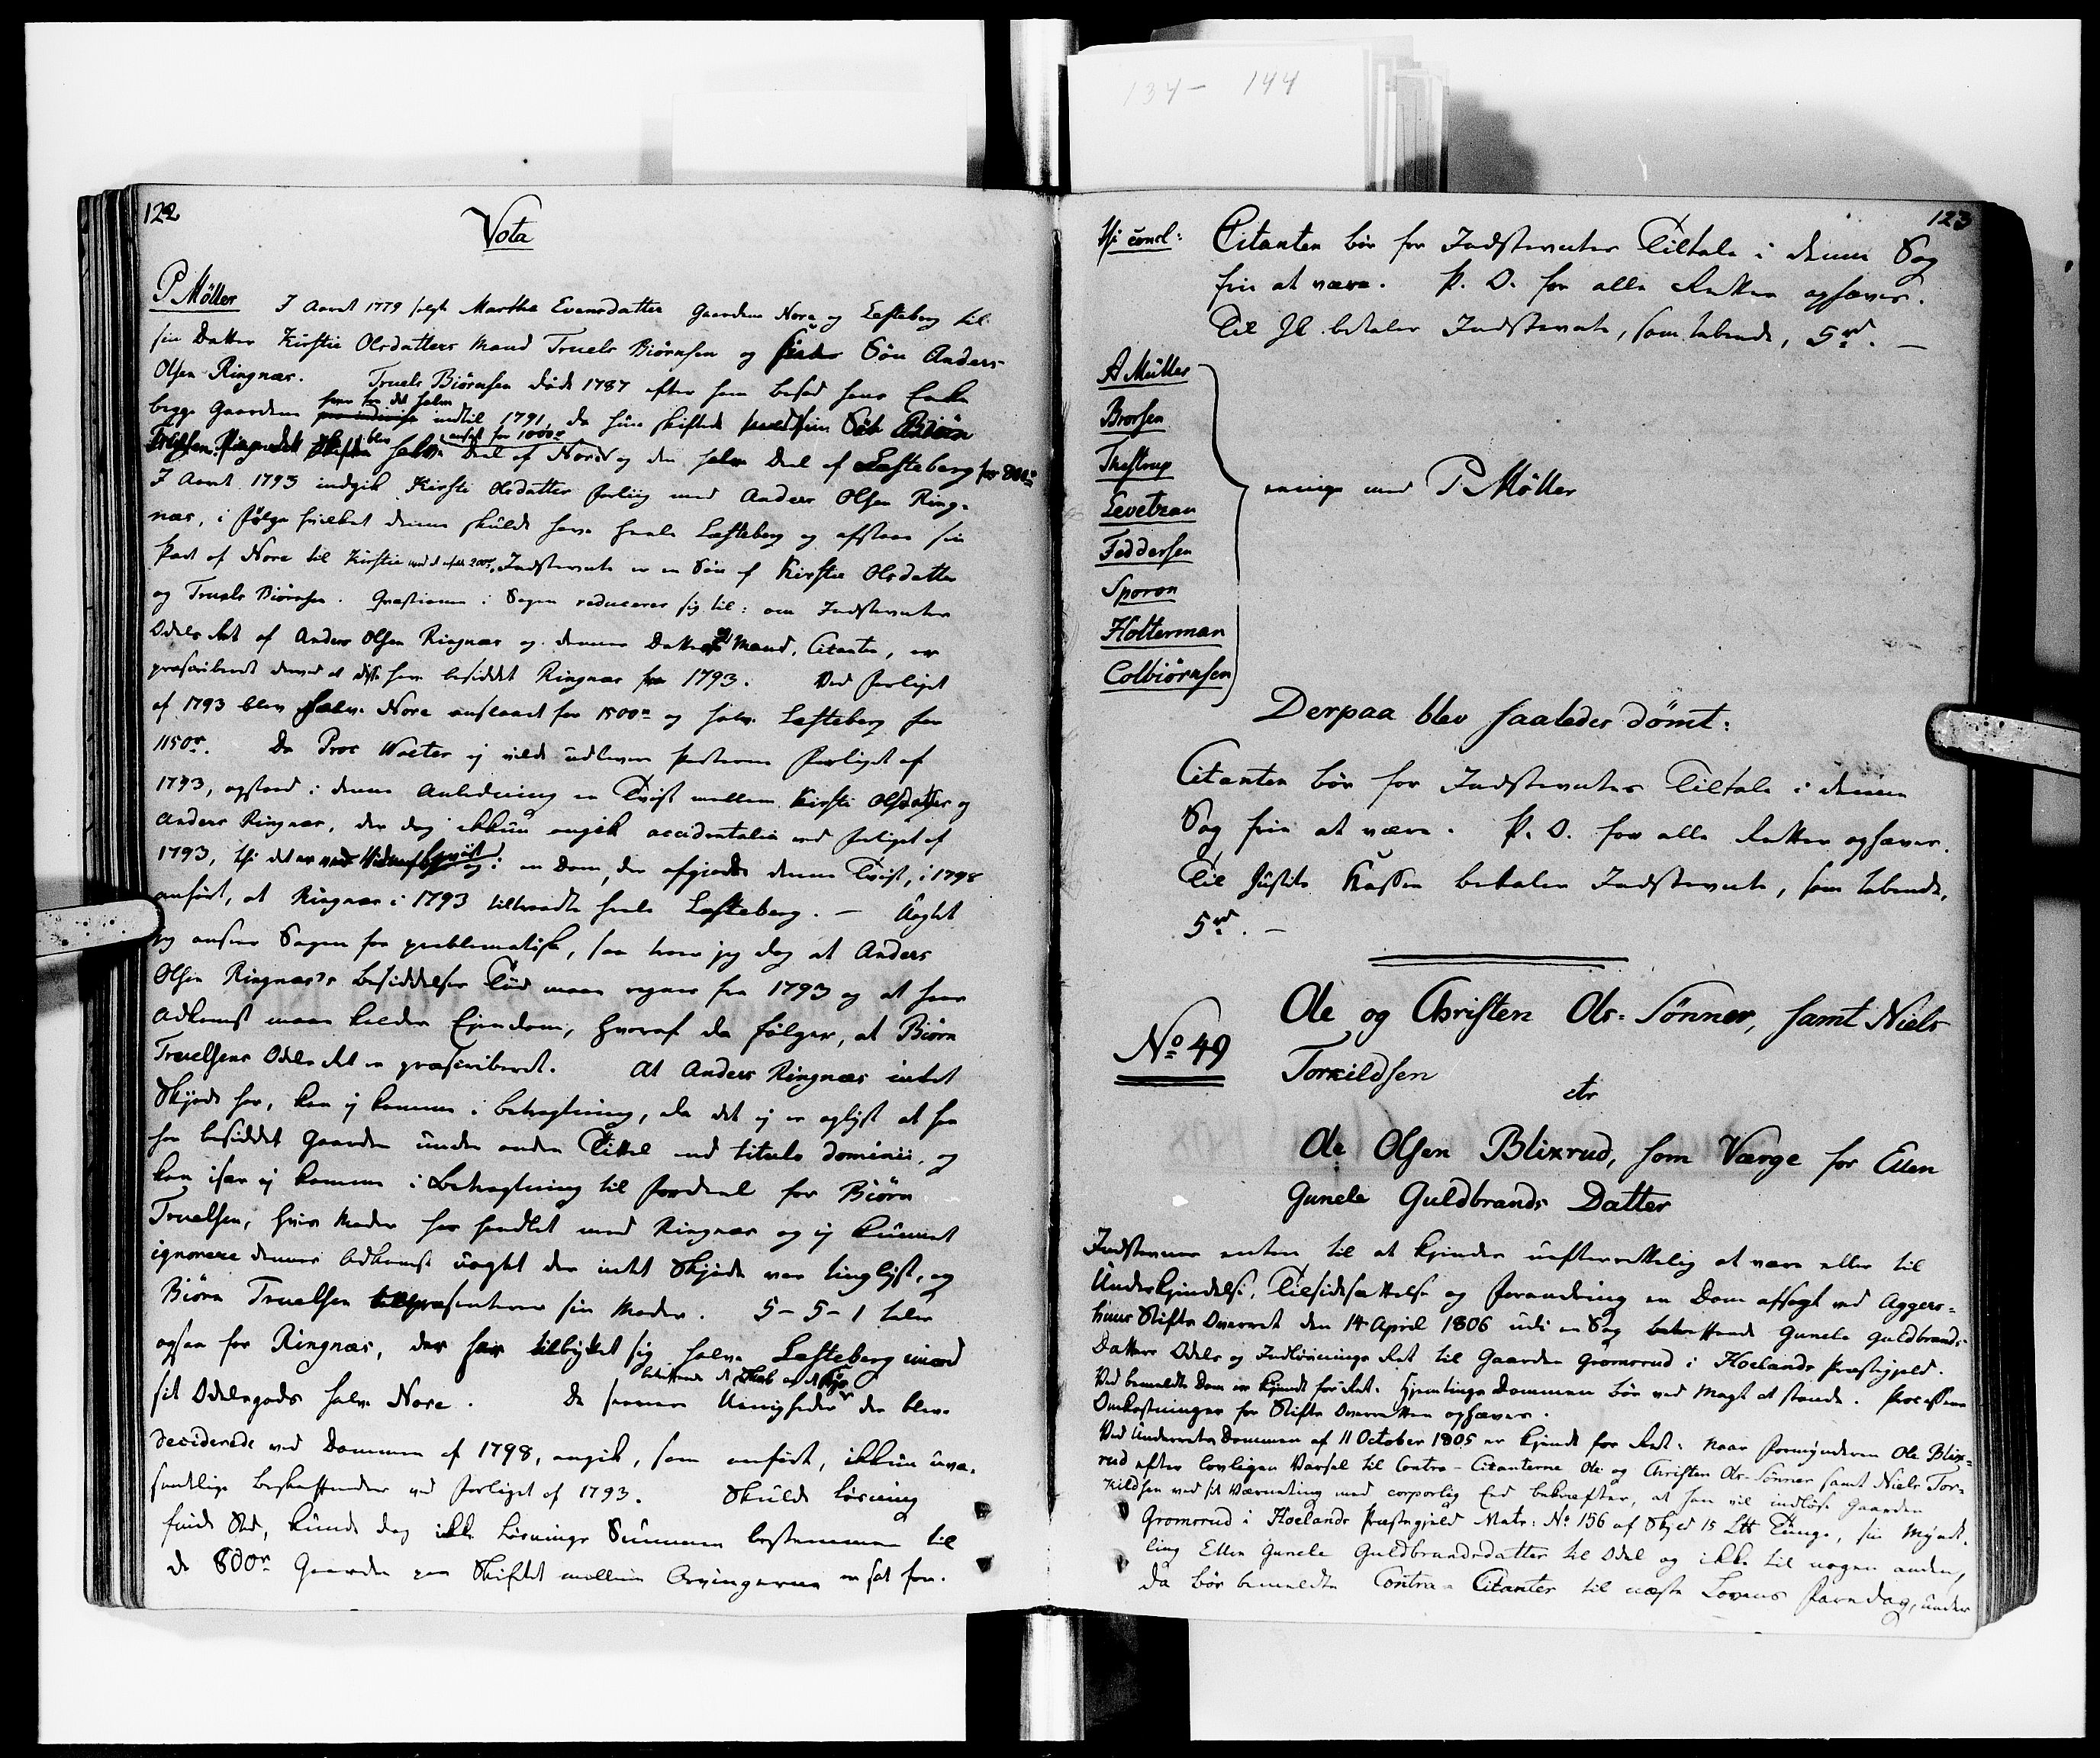 134 - 144
122
Vota
P Møller I Aaret 1779 solgte Marthe Evensdatter Gaardene Nore og Lofteberg til
sin Datter Kirstie Olsdatters Mand Truels Biørnsen og Søn Anders
Olsen Ringnæs. Truels Biørnsen døde 1787 efter ham besad hans Enke
begge Gaardene indtil 1791, da hun skiftede med sin Søn Biørn
halve Deel af Nore og den halve Deel af Lofteberg for 800r
ansat for 1000r
I Aaret 1793 indgik Kirsti Olsdatter Forliig med Anders Olsen Ring-
næs, i Følge hvilket denne skulde have heele Lofteberg og afstaae sin
Part af Nore til Kirstie Indstevnte er en Søn af Kirstie Olsdatter
og Truels Biørnsen. Qvæstionen i Sagen reducerer sig til: om Indstevntes
Odels Ret af Anders Olsen Ringnæs og dennes Datters Mand, Citanten, er
præscriberet derved at disse have besiddet Ringnæs fra 1793. Ved Forliget
af 1793 blev halve Nore anslaaet for 1500r og halve Lofteberg for
1150r. Da Proc Wolter ej vilde udlevere Parterne Forliget af
1793, opstod i denne Anledning en Tvist mellem Kirsti Olsdatter og
Anders Ringnæs, der dog ikkun angik accidentalia ved Forliget af
1793, thi det er i en Dom, der afgiorde denne Tvist, i 1798
anført, at Ringnæs i 1793 tiltraadte heele Lofteberg. — Uagtet
jeg anseer Sagen for problematisk, saa troer jeg dog at Anders
Olsen Ringnæs's Besiddelses Tiid maae regnes fra 1793 og at hans
Adkomst maae kaldes Eiendom, hvoraf da følger, at Biørn
Truelsens Odels Ret er præscriberet. At Anders Ringnæs intet
Skjøde har, kan ej komme i Betragtning, da det ej er oplyst at han
har besiddet Gaarden under anden Tittel end titulo dominii, og
kan især ej komme i Betragtning til Fordeel for Biørn
Truelsen, hvis Moder har handlet med Ringnæs og ej kunnet
ignorere dennes Adkomst uagtet der intet Skjøde var tinglyst, og
Biørn Truelsen repræsenterer sin Moder. 5-5-1 taler
ogsaa for Ringnæs, der har tilbyttet sig halve Lofteberg imod
sit Odelsgods halve Nore. De senere Uenigheder der bleve
deciderede ved Dommen af 1798, angik, som anført, ikkun uvæ-
sentlige Beskaffenheder ved Forliget af 1793. Skulde Løsning
finde Sted, kunde dog ikke Løsnings Summen bestemmes til
de 800r Gaarden paa Skiftet mellem Arvingerne er sat for.
123
Thi concl: Citanten bør for Indstevntes Tiltale i denne Sag
frie at være. P. O. for alle Retter ophæves.
Til JC betaler Indstevnte, som tabende, 5rd. —
A Müller
Brorsen
Thestrup
Levetzau
Feddersen
Sporon
Holterman
Colbiørnsen
eenige med P Møller
Derpaa blev saaledes dømt:
Citanten bør for Indstevntes Tiltale i denne
Sag frie at være. P. O. for alle Retter ophæves.
Til Justits Kassen betaler Indstevnte, som tabende,
5rd. —
No 49
Ole og Christen Ols-Sønner, samt Niels
Torkildsen
ctr
Ole Olsen Blixrud, som Værge for Ellen
Gunele Guldbrands Datter
Indstevner enten til at kjendes uefterrettelig at være eller til
Underkjendelse, Tilsidesættelse og Forandring en Dom afsagt ved Aggers-
huus Stifts Overret den 14 April 1806 udi en Sag betreffende Gunele Guldbrands-
Datters Odels og Indløsnings Ret til Gaarden Gromsrud i Hoelands Præstegjeld.
Ved bemeldte Dom er kjendt for Ret: Hjemtings Dommen bør ved Magt at stande. Processens
Omkostninger for Stifts Overretten ophæves.
Ved Underrets Dommen af 11 October 1805 er kjendt for Ret: Naar Formynderen Ole Blix-
rud efter lovligen Varsel til Contra-Citanterne Ole og Christen Ols-Sønner samt Niels Tor-
kildsen ved sit Værneting med corporlig Eed bekræfter, at han vil indløse Gaarden
Gromsrud i Hoelands Præstegjeld Matr: No 156 af Skyld 15 Lb Tunge, sin Mynd-
ling Ellen Gunele Guldbrandsdatter til Odel og ikke til nogen anden,
da bør bemeldte Contra-Citanter til næste Lovens Faredag, under